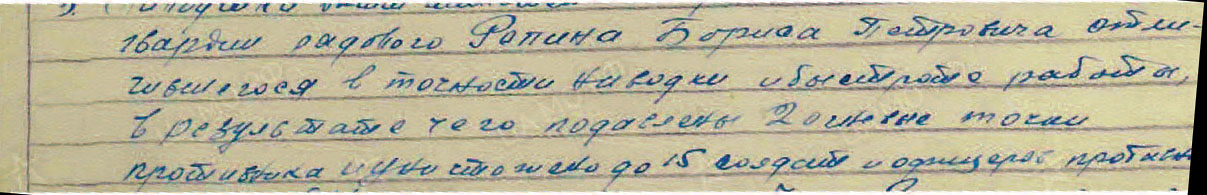 гвардии рядового Репина Бориса Петровича отли-
чившегося в точности наводки и быстроте работы,
в результате чего подавлены 2 огневые точки
противника и уничтожено до 15 солдат и офицеров